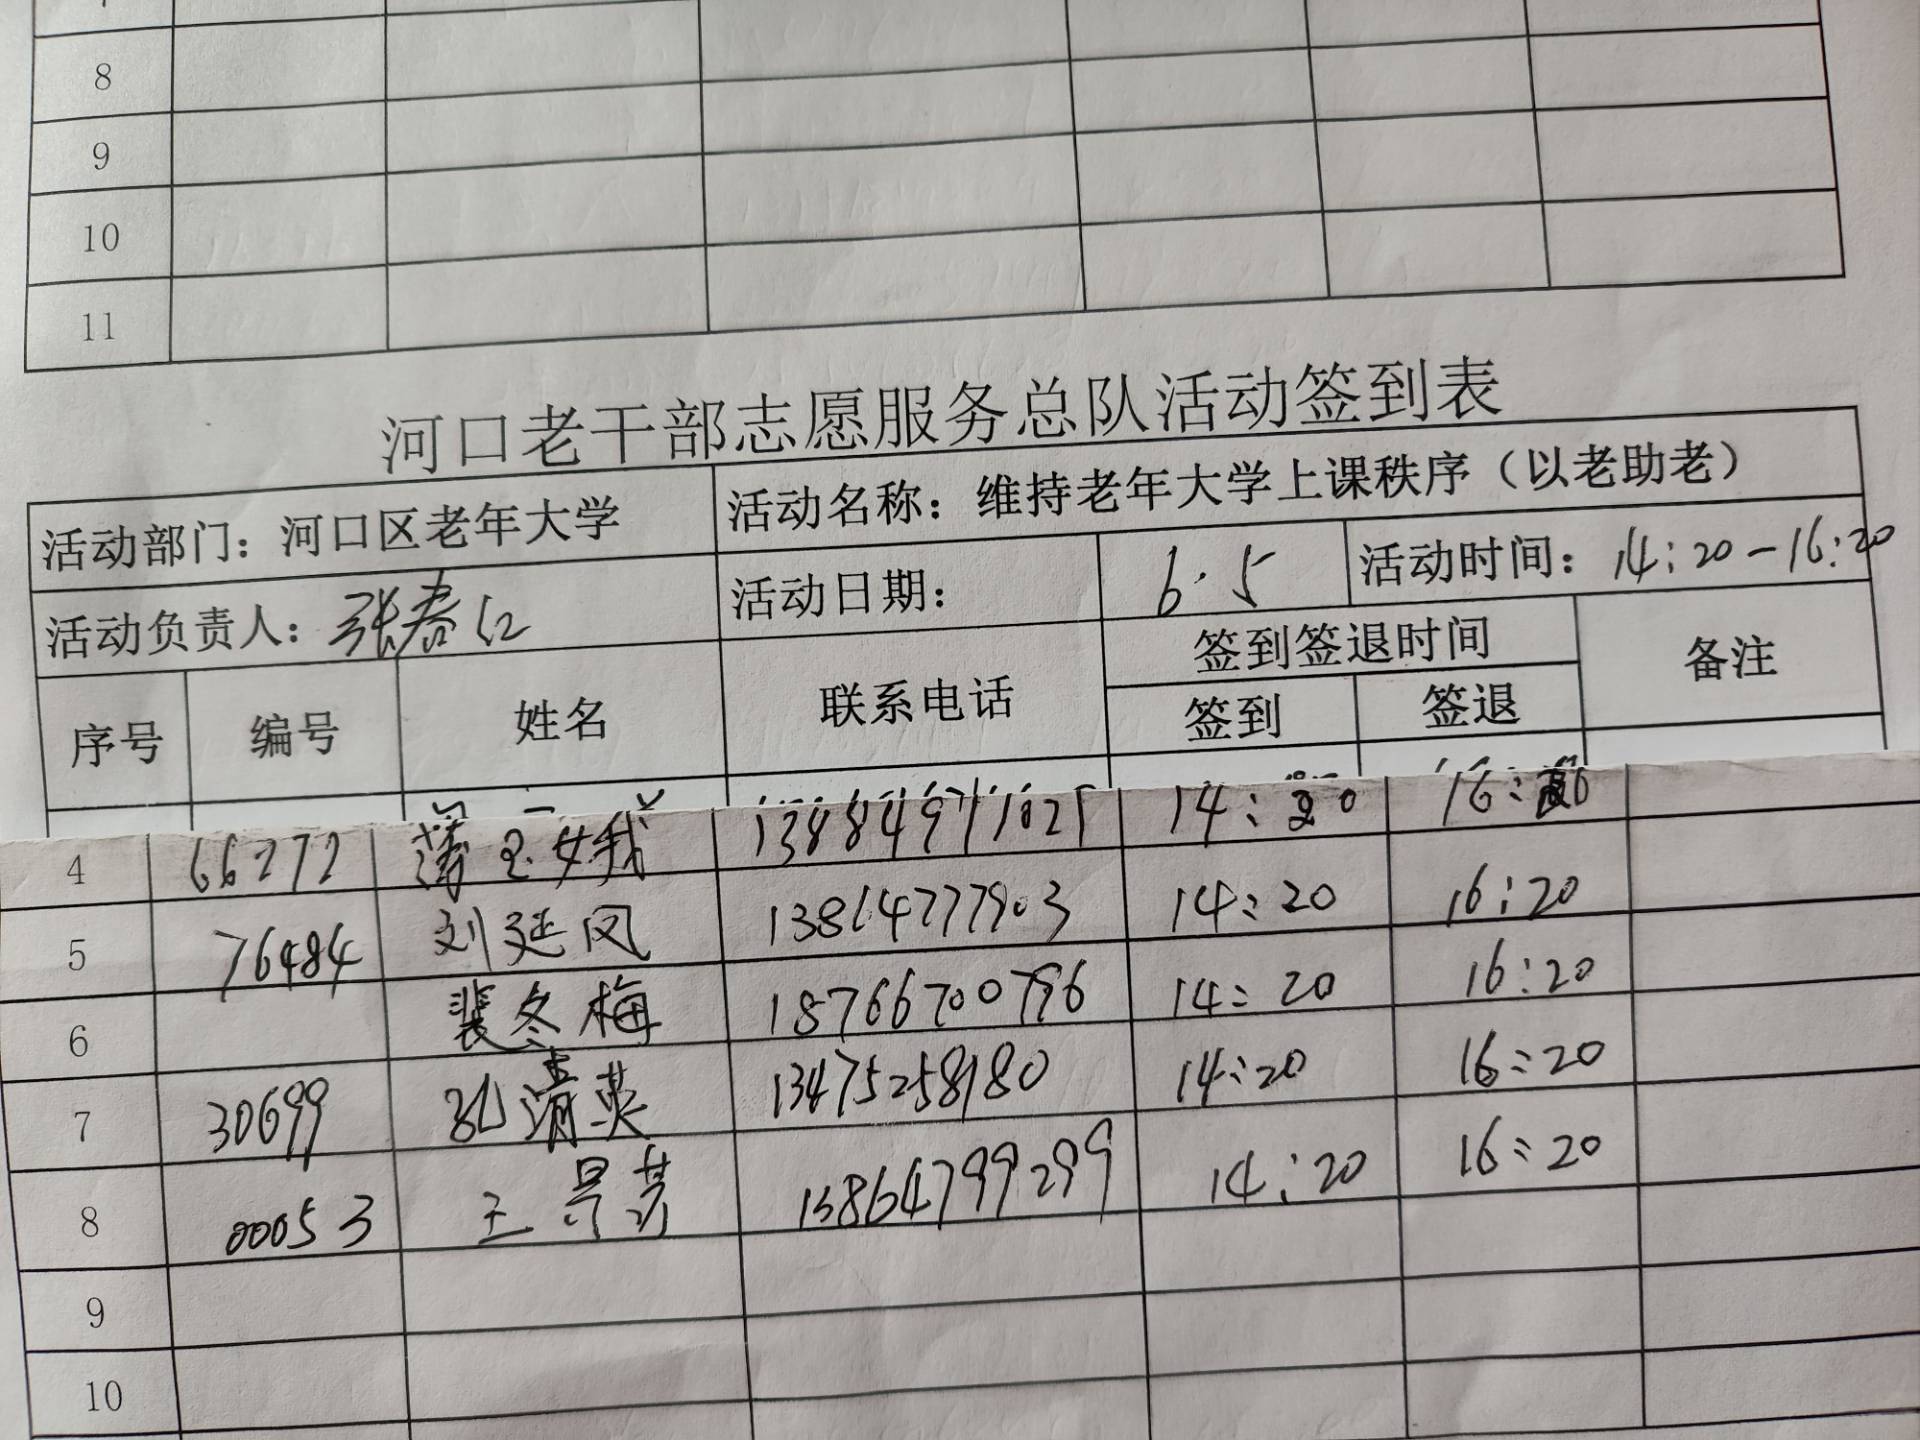 8
9
10
11
河口老干部志愿服务总队活动签到表
活动部门：河口区老年大学 活动名称：维持老年大学上课秩序（以老助老）
活动负责人：张春江 活动日期： 6.5 活动时间：14:20-16:20
序号 编号 姓名 联系电话 签到签退时间 备注
签到 签退
4 66272 薄玉娥 13884971025 14:20 16:20
5 76484 刘延凤 13864777903 14:20 16:20
6 裴冬梅 18766700796 14:20 16:20
7 30699 孔清英 13475258180 14:20 16:20
8 00053 王景芳 13864799299 14:20 16:20
9
10